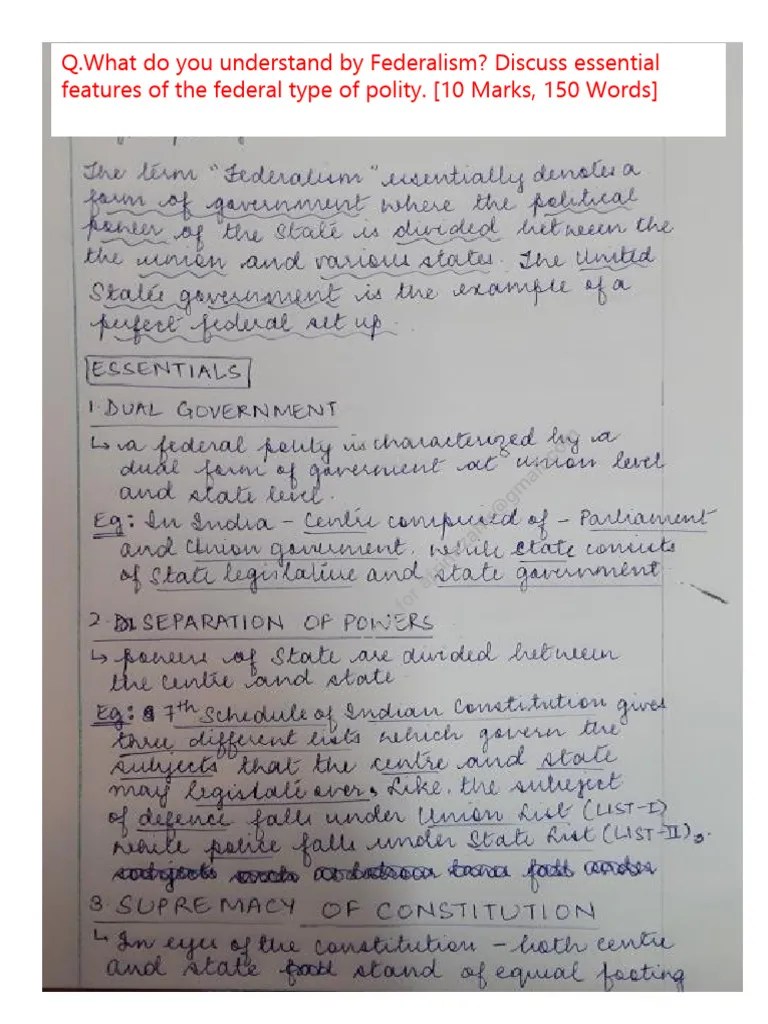 Q.What do you understand by Federalism? Discuss essential
features of the federal type of polity. [10 Marks, 150 Words]
The term "Federalism" essentially denotes a
form of government where the political
power of the State is divided between the
the union and various states. The United
States government is the example of a
perfect federal set up.
ESSENTIALS
1. DUAL GOVERNMENT
↳ a federal polity is characterized by a
dual form of government at union level
and state level.
Eg: In India - Centre comprised of - Parliament
and Union government. while state consists
of State legislative and state government
2. SEPARATION OF POWERS
↳ powers of State are divided between
the centre and state
Eg: 7th Schedule of Indian Constitution gives
three different lists which govern the
subjects that the centre and state
may legislate over. Like, the subject
of defence falls under Union List (LIST-I)
while police falls under State List (LIST-II).
3. SUPREMACY OF CONSTITUTION
↳ In eyes of the constitution - both centre
and state stand of equal footing
@gmail.com